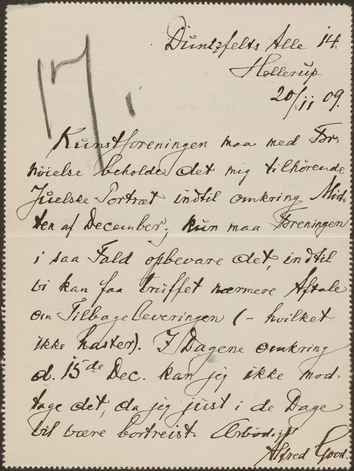 17.
Duntzfelts Alle 14.
Hellerup
20/11 09.
Kunstforeningen maa med For-
nöielse beholde det mig tilhörende
Juelske Portræt indtil omkring Mid-
ten af December; kun maa Foreningen
i saa Fald opbevare det, indtil
vi kan faa truffet nærmere Aftale
om Tilbageleveringen (- hvilket
ikke haster). I Dagene omkring
d. 15de Dec. kan jeg ikke mod-
tage det, da jeg just i de Dage
vil være bortreist. Ærbödigst
Alfred Good.